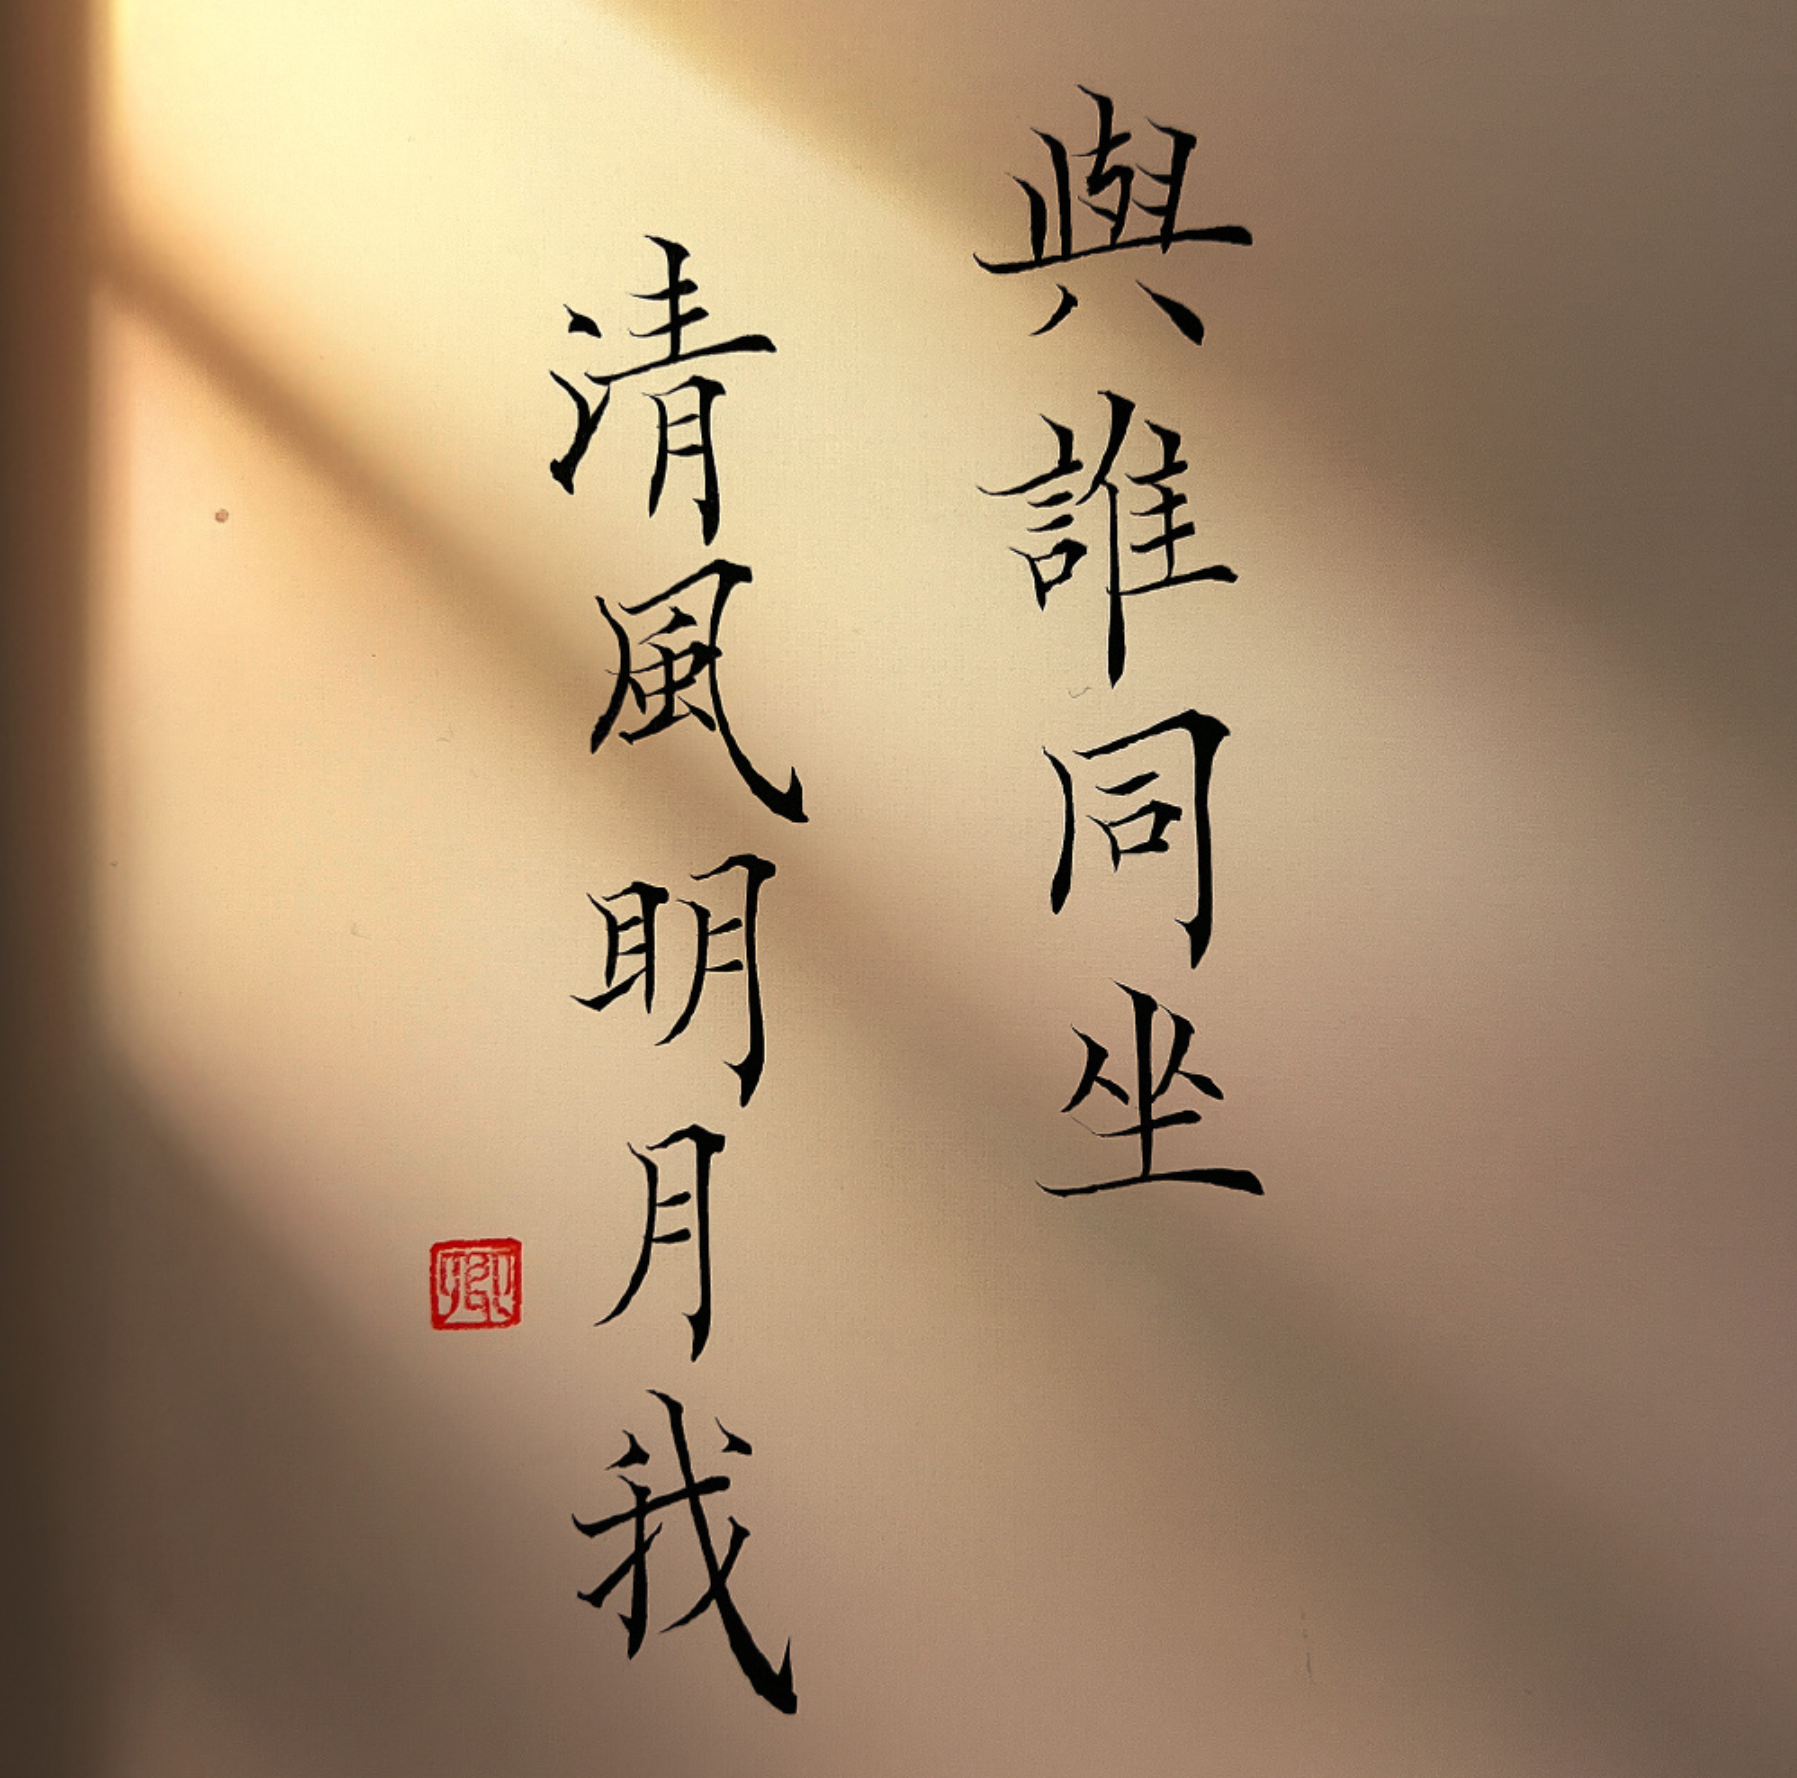 與誰同坐
清風明月我